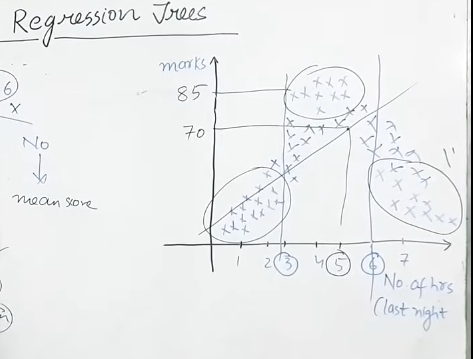 Regression Trees
6
x
No
mean score
marks
85
70
1 2 3 4 5 6 7
No. of hrs
(last night